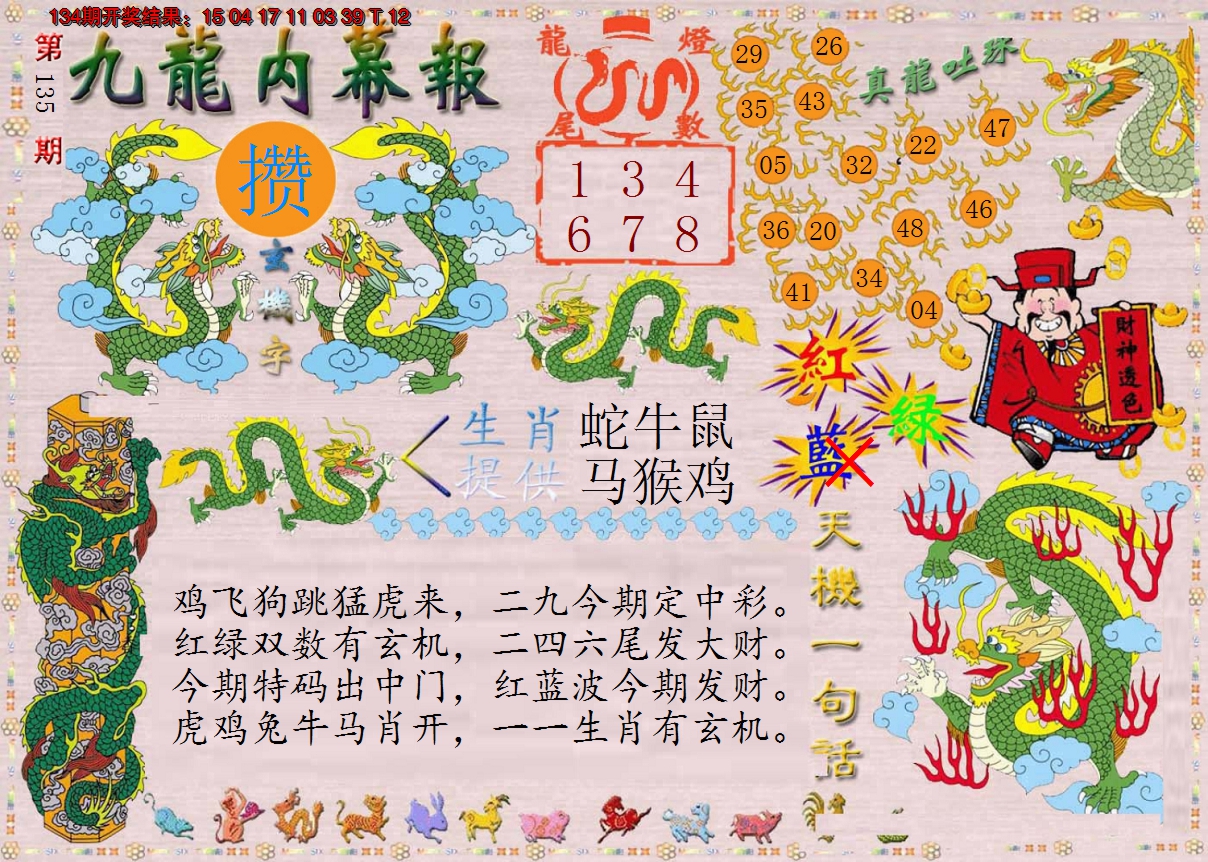 134期开奖结果：15 04 17 11 03 39 T 12
第135期
九龍内幕報
攒
玄機字
龍燈
尾數
1 3 4
6 7 8
真龍吐珠
29 26
35 43
05 32 22 47
36 20 48 46
41 34 04
財神透色
紅
綠
藍
生肖提供
蛇牛鼠
马猴鸡
天機一句话
鸡飞狗跳猛虎来，二九今期定中彩。
红绿双数有玄机，二四六尾发大财。
今期特码出中门，红蓝波今期发财。
虎鸡兔牛马肖开，一一生肖有玄机。